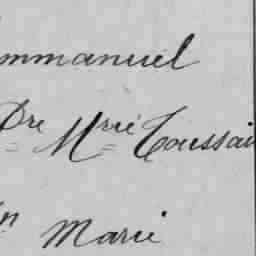 mmanuel
Dre Mrie Toussai
n Marie